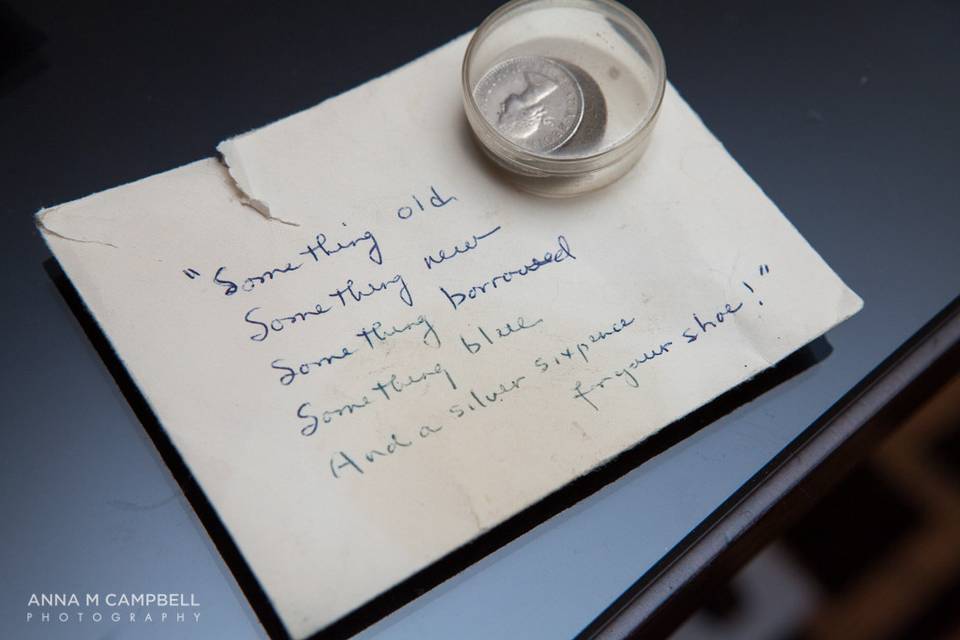 "Something old
Something new
Something borrowed
Something blue
And a silver sixpence
for your shoe!"
ANNA M CAMPBELL
PHOTOGRAPHY